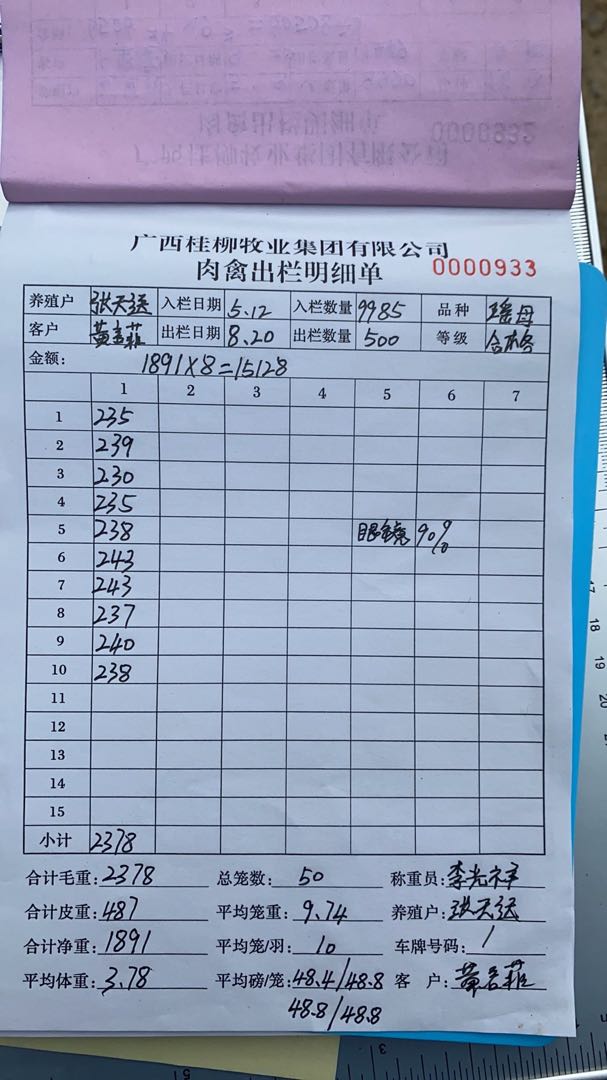 0000932
广西桂柳牧业集团有限公司
肉禽出栏明细单 0000933
养殖户 张天送 入栏日期 5.12 入栏数量 9985 品种 瑶母
客户 黄名菲 出栏日期 8.20 出栏数量 500 等级 合格
金额: 1891×8=15128
1 2 3 4 5 6 7
1 235
2 239
3 230
4 235
5 238 眼镜 90%
6 243
7 243
8 237
9 240
10 238
11
12
13
14
15
小计 2378
合计毛重:2378 总笼数: 50 称重员:李光祥
合计皮重:487 平均笼重: 9.74 养殖户:张天送
合计净重:1891 平均笼/羽: 10 车牌号码: /
平均体重:3.78 平均磅/笼:48.4/48.8 客 户:黄名菲
48.8/48.8